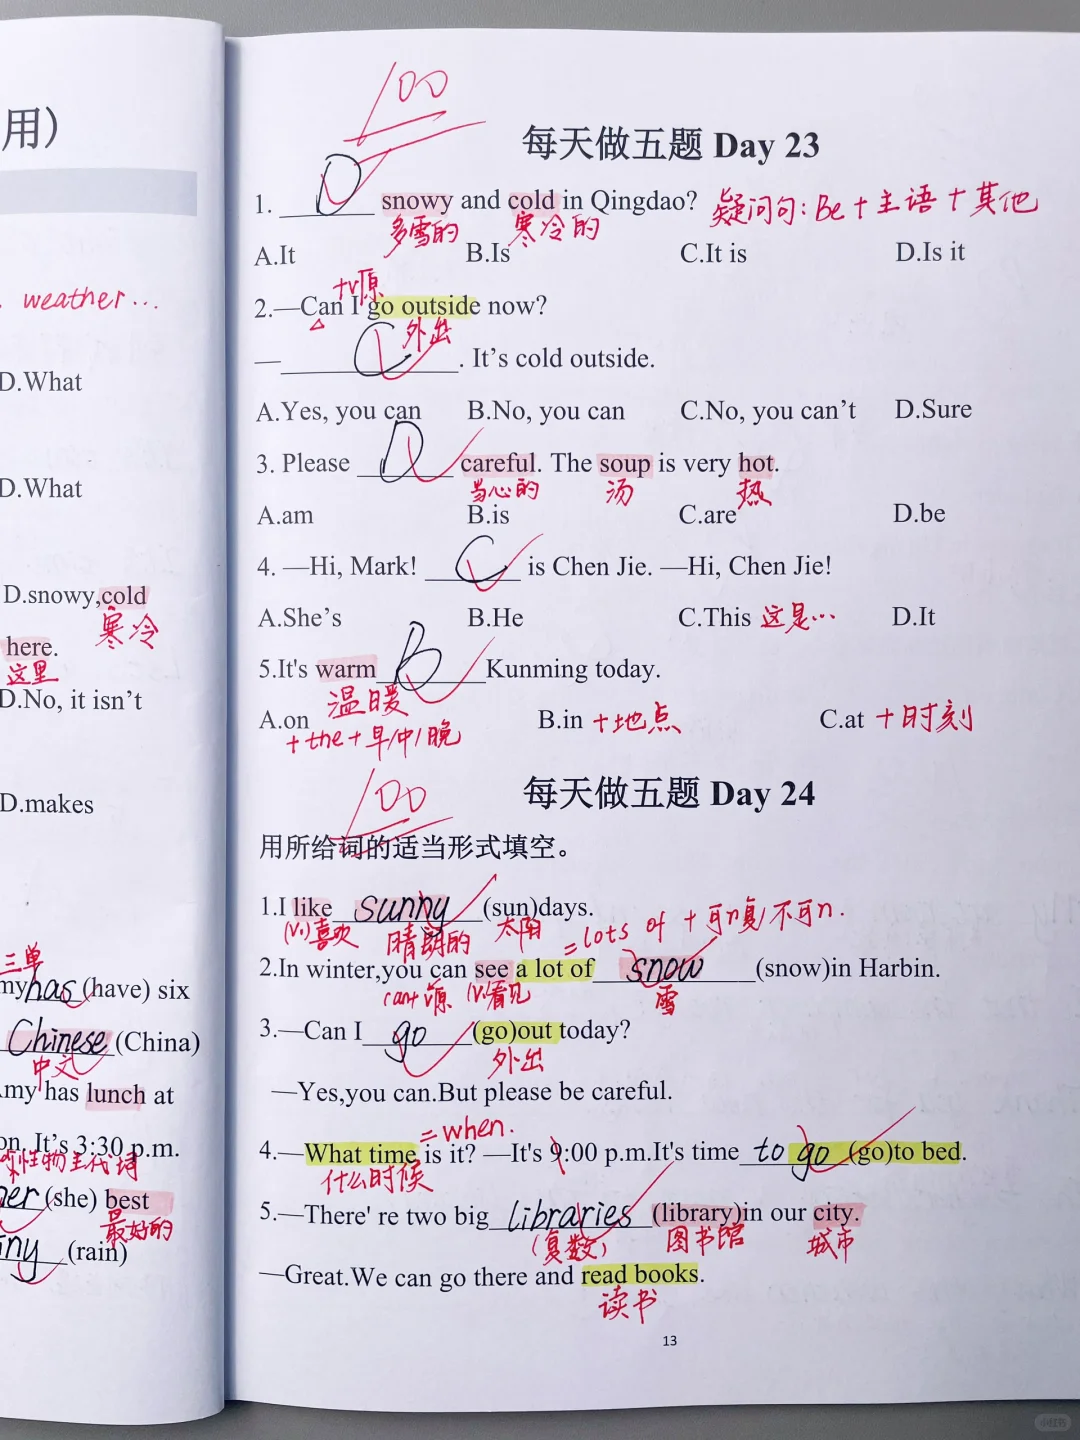 用）
weather…
D.What
D.What
D.snowy,cold
寒冷
here.
这里
D.No, it isn't
D.makes
三单
my has (have) six
Chinese (China)
中文
my has lunch at
on. It's 3:30 p.m.
形性物主代词
her (she) best
最好的
iny (rain)
100
每天做五题 Day 23
1. D snowy and cold in Qingdao? 疑问句: Be + 主语 + 其他
多雪的 寒冷的
A.It B.Is C.It is D.Is it
+v原
2.—Can I go outside now?
外出
— C . It's cold outside.
A.Yes, you can B.No, you can C.No, you can't D.Sure
3. Please D careful. The soup is very hot.
当心的 汤 热
A.am B.is C.are D.be
4. —Hi, Mark! C is Chen Jie. —Hi, Chen Jie!
A.She's B.He C.This 这是… D.It
5.It's warm B Kunming today.
温暖
A.on B.in +地点 C.at +时刻
+the+早/中/晚
100
每天做五题 Day 24
用所给词的适当形式填空。
1.I like sunny (sun)days.
(v.)喜欢 晴朗的 太阳 =lots of + 可n复/不可n.
2.In winter,you can see a lot of snow (snow)in Harbin.
can+v原 (v.)看见 雪
3.—Can I go (go)out today?
外出
—Yes,you can.But please be careful.
=when.
4.—What time is it? —It's 9:00 p.m.It's time to go (go)to bed.
什么时候
5.—There' re two big libraries (library)in our city.
(复数) 图书馆 城市
—Great.We can go there and read books.
读书
13
小红书